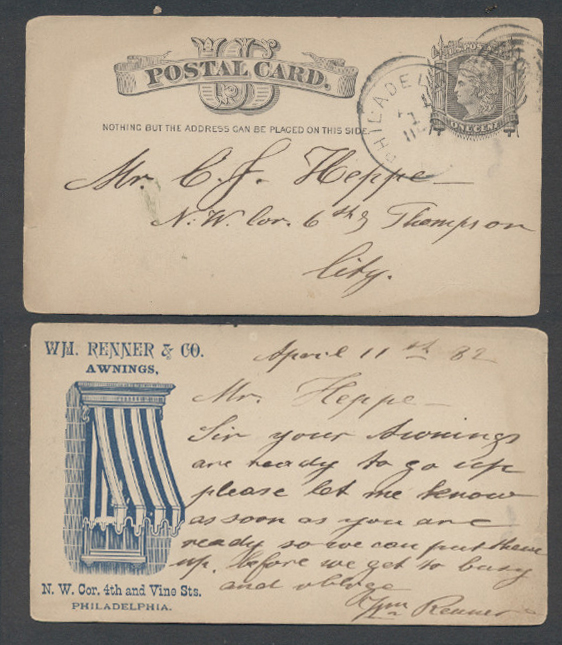 US
POSTAL CARD.
NOTHING BUT THE ADDRESS CAN BE PLACED ON THIS SIDE.
PHILADEL
ONE CENT
Mr. C. J. Heppe
N. W. Cor. 6th & Thompson
City.
WM. RENNER & CO.
AWNINGS,
N. W. Cor. 4th and Vine Sts.
PHILADELPHIA.
April 11th 82
Mr. Heppe
Sir your Awnings
are ready to go up
please let me know
as soon as you are
ready so we can put them
up. before we get to busy
and oblige
Wm Renner